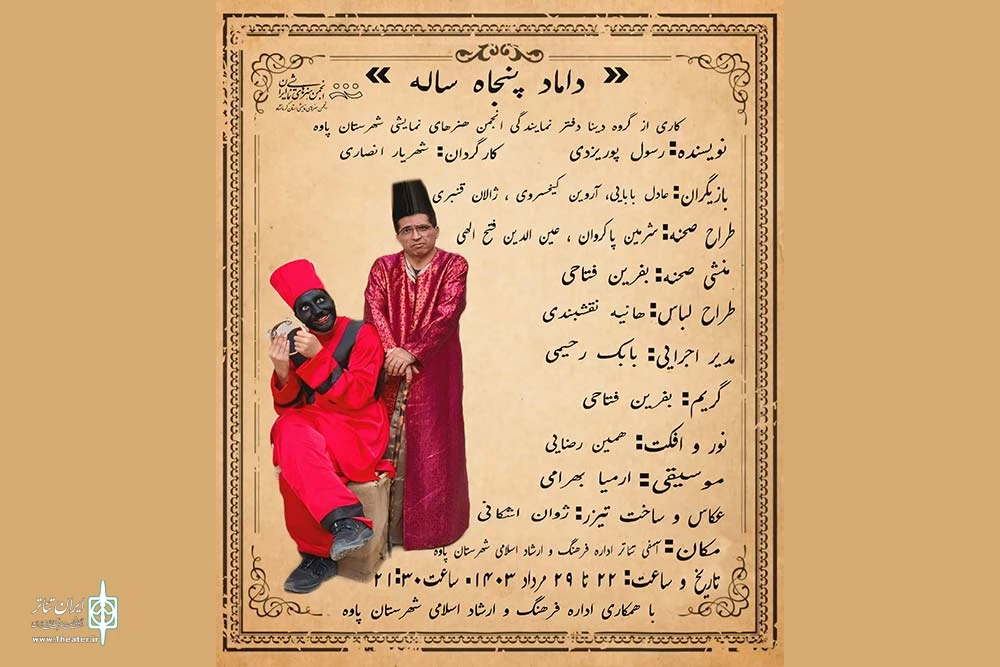 « داماد پنجاه ساله »
انجمن هنرهای نمایشی ایران
انجمن هنرهای نمایشی استان کرمانشاه
کاری از گروه دینا دفتر نمایندگی انجمن هنرهای نمایشی شهرستان پاوه
نویسنده: رسول پوریزدی کارگردان: شهریار انصاری
بازیگران: عادل بابایی، آروین کیخسروی ، ژالان قنبری
طراح صحنه: شرمین پاکروان ، عین الدین فتح الهی
منشی صحنه: بفرین فتاحی
طراح لباس: هانیه نقشبندی
مدیر اجرایی: بابک رحیمی
گریم: بفرین فتاحی
نور و افکت: همین رضایی
موسیقی: ارمیا بهرامی
عکاس و ساخت تیزر: ژوان اشکانی
مکان: آمفی تئاتر اداره فرهنگ و ارشاد اسلامی شهرستان پاوه
تاریخ و ساعت: ۲۲ تا ۲۹ مرداد ۱۴۰۳. ساعت ۲۱:۳۰
با همکاری اداره فرهنگ و ارشاد اسلامی شهرستان پاوه
ایران تئاتر
www.Theater.ir